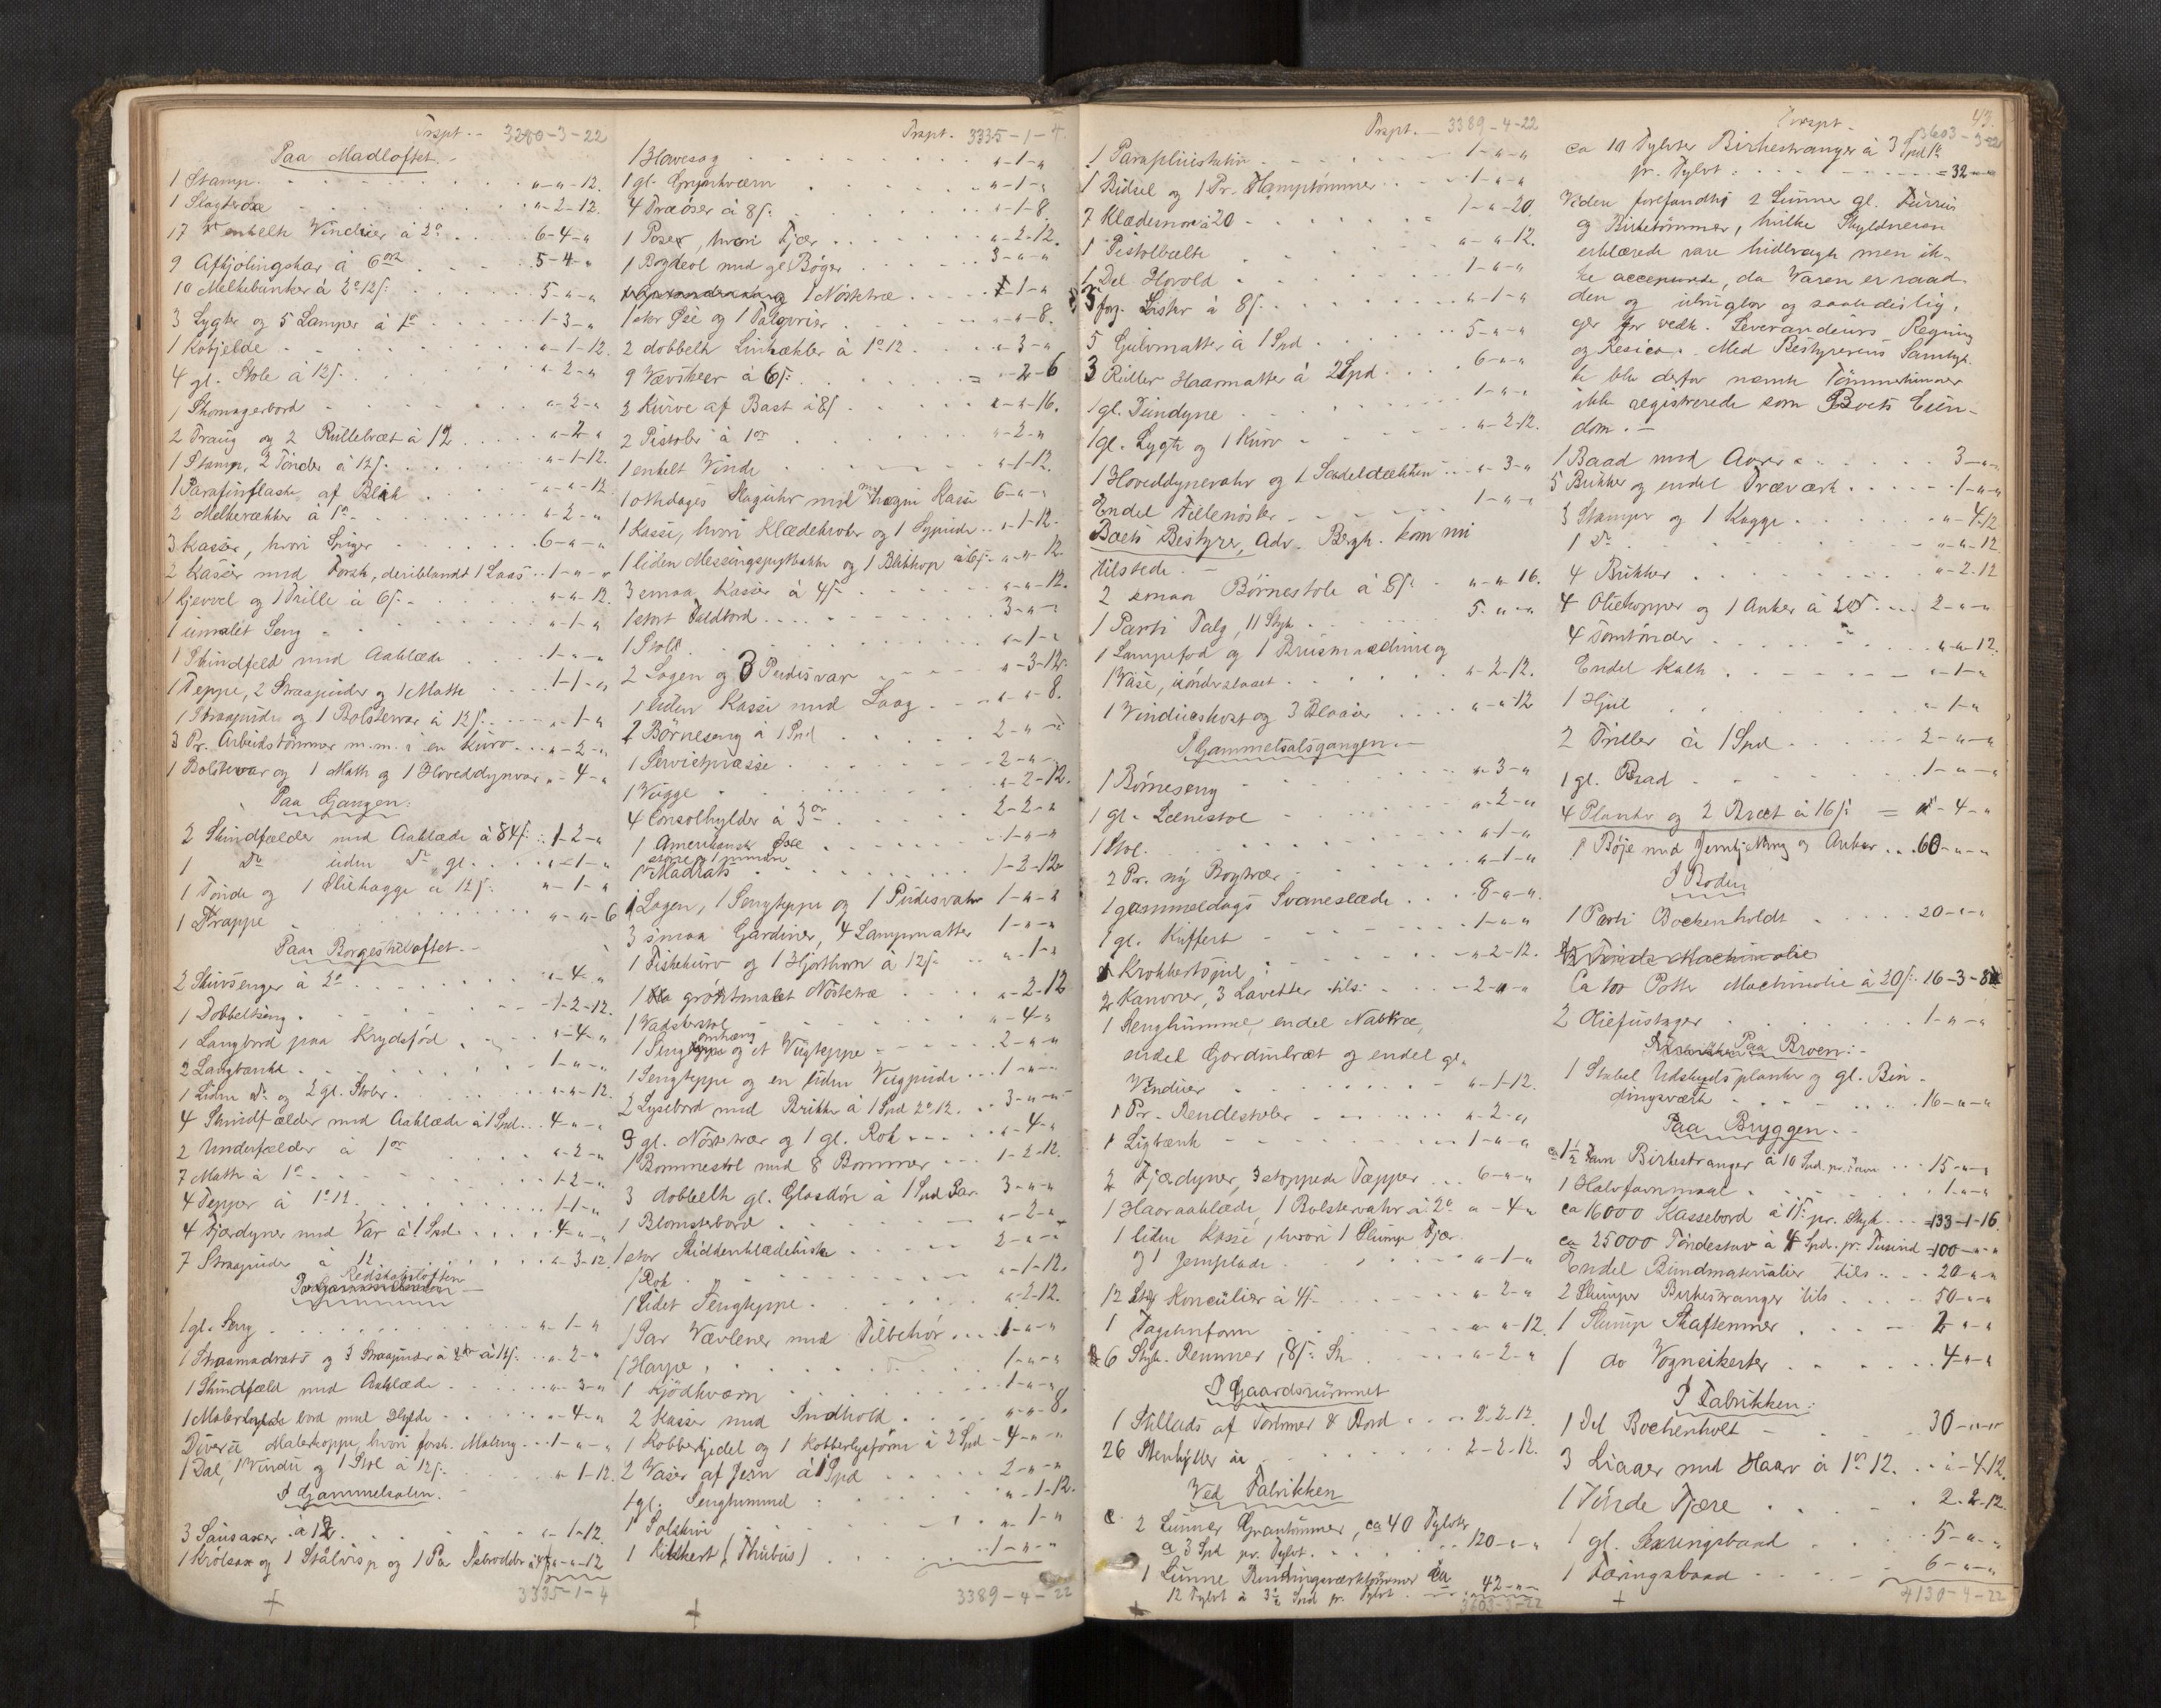 Trspt. 3280-3-22
Paa Madloftet.
1 Stamp. "-"-12.
1 Slagter "-2-12.
17 enkelte Vinduer à 2 6-4-"
9 Afkjølingskar à 6 ort 5-4-"
10 Melkebunker à 2 12/: 5-"-"
3 Lygter og 5 Lamper à 1 1-3-"
1 Kobjelde "-1-12.
4 gl. Stole à 12/: "-2-"
1 Skomagerbord "-2-"
2 Traug og 2 Rullebræt à 12 "-2-"
1 Stamp, 2 Tønder à 12/: "-1-12.
1 Parafinflaske af Blik "-"-12
2 Melkerækker à 1 "-2-"
3 Kasser, hvori Spiger 6-"-"
2 Kasser med Forsk, deriblandt 1 Laas 1-"-"
1 Kjevvel og 1 Trille à 6/: "-"-12.
1 umalet Seng "-1-"
1 Skindfeld med Aaklæde 1-"-"
1 Teppe, 2 Straapuder og 1 Matte 1-1-"
1 Straapude og 1 Bolstervar à 12/: "-1-"
3 Pr. Arbeidstømmer m.m. i en Kurv "-2-"
1 Bolstervar og 1 Matte og 1 Hoveddynvar "-4-"
Paa Gangen:
2 Skindfelder med Aaklæde à 84/: 1-2-"
1 Do uden Do gl. "-1-"
1 Tønde og 1 Oliekagge à 12/: "-1-"
1 Trappe "-"-6
Paa Borgestueloftet.
2 Skuvsenger à 2 "-4-"
1 Dobbeltseng 1-2-12.
1 Langbord paa Krydsfod "-4-"
2 Langbænke 1-"-"
1 Liden do og 2 gl. Stoler "-"-12.
4 Skindfælder med Aaklæde à 1 Spd. 4-"-"
2 Underfælder à 1 ort "-2-"
7 Matte à 1 1-2-"
4 Tepper à 1 12 1-1-"
4 Fjærdyner med Var à 1 Spd. 4-"-"
7 Straapuder à 12 "-3-12
Redskabsloften
1 gl. Seng "-1-"
1 Straamadrats og 3 Straapuder à 12/: "-2-"
1 Skindfæld med Aaklæde "-3-"
1 Malerbord med Hylde "-4-"
Diverse Malerkoppe, hvori forsk. Maling 1-"-"
1 Dal, 1 Vindu og 1 Stol à 12/: "-1-12.
I Gammelsalen.
3 Sausaxer à 12 "-1-12
1 Krølsax og 1 "-"-12
3335-1-4

Trspt. 3335-1-4
1 Havesag "-1-"
1 gl. Grynkværn "-1-"
4 Træøser à 8/: "-1-8
1 Pose, hvori Fjær "-2-12.
1 Bogreol med gl Bøger 3-"-"
1 Nøstetræ "-1-"
1 stor Øse og 1 "-"-8.
2 dobbelte Linhekler à 1 12 "-3-"
9 Vævskeer à 6/: "-2-6
2 Kurve af Bast à 8/: "-"-16.
2 Pistoler à 1 ort "-2-"
1 enkelt Vinde "-1-12.
1 ottedages Slaguhr med mahogni Kasse 6-"-"
1 Kasse, hvori Klædekroker og 1 Sypude "-1-12.
1 liden Messingspytbakke og 1 Blikkop à 6/: "-"-12
3 smaa Kasser à 4/: "-"-12.
1 stort Foldbord 3-"-"
1 Stol "-1-"
2 Lagen og 3 Pudesvar "-3-12.
1 liden Kasse med Laag "-"-8.
2 Børneseng à 1 Spd 2-"-"
1 Servietpresse 2-"-"
1 Vugge "-2-12.
4 Consolhylder à 3 ort 2-2-"
1 Amerikansk Øxe 1-"-"
større og 1 mindre
1 Madrats 1-3-12
1 Lagen, 1 Sengteppe og 1 Pudesvahr 1-"-"
3 smaa Gardiner, 4 Lampematter 1-"-"
1 Fiskekurv og 1 Hjorthorn à 12/: "-1-"
1 grøntmalet Nøstetræ "-2-12
1 Vadskerstol "-4-"
1 Sengomhæng og et Vugteppe 2-"-"
1 Sengteppe og en liden Vugpude 1-"-"
2 Lysebord med Brikke à 1 Spd 2 12. 3-"-"
9 gl. Nøstetrær og 1 gl. Rok "-4-"
1 Bommestol med 8 Bommer 1-2-12.
3 dobbelte gl. Glasdøre à 1 Spd Par. 3-"-"
1 Blomsterbord "-2-"
1 stor Skiddenklædekiste 2-"-"
1 Rok "-1-12.
1 lidet Sengteppe "-2-12.
1 Par Vævlener med Tilbehør 1-"-"
1 Harpe 1-"-"
1 Kjødkværn 1-"-"
2 Kasser med Indhold "-"-8.
1 Kobberkjedel og 1 Kobberlysform à 2 Spd 4-"-"
2 Vaser af Jern à 1 Spd 2-"-"
1 gl. Senghimmel "-1-12.
1 Solskive "-1-"
1 Kikkert (Thubus) 1-"-"
3389-4-22

Trspt. 3389-4-22
1 Paraplüestativ 1-"-"
1 Bidsel og 1 Pr. Hamptømmer 1-"-"
7 Klædesnor à 20 1-"-20.
1 Pistolbælte "-"-12.
1 Del Hovold 1-"-"
3 forg. Lister à 8/: "-1-"
5 Gulvmatter à 1 Spd 5-"-"
3 Ruller Haarmatter à 2 Spd 6-"-"
1 gl. Dundyne 1-"-"
1 gl. Lygte og 1 Kurv "-2-12.
1 Hoveddynevahr og 1 Sadeldækken "-3-"
Endel Fillenøster 1-"-"
Boets Bestyrer, Adv. Bergh. kom nu
tilstede.
2 smaa Børnestole à 8/: "-"-16.
1 Parti Talg, 11 Styk 5-"-"
1 Lampefod og 1 Brusmaschine og
1 Vase, sønderslaaet "-2-12.
1 Vindueskost og 3 Blaaser "-"-12
I Gammelsalsgangen.
1 Børneseng "-3-"
1 gl. Lænestol "-2-"
1 Stol. "-1-"
2 Pr. ny Bogtrær "-1-"
1 gammeldags Svaneslæde 8-"-"
1 gl. Kuffert 1-"-"
1 Krokketspil "-2-12.
2 Kanoner, 3 Lavetter tils. 2-"-"
1 Senghimmel, endel Nabtræ,
endel Gardinbræt og endel gl.
Vinduer "-1-12.
1 Pr. Rendestoler "-2-"
1 Ligbænk 1-"-"
2 Fjædyner, 3 stoppede Tæpper 6-"-"
1 Haaraaklæde, 1 Bolstervahr à 2 "-4-"
1 liden Kasse, hvori 1 Slump Fjær
og 1 Jernplade "-1-"
12 Stk Konsülier à 4/: "-2-"
1 Tagstenform "-"-12.
6 Styk. Remmer, 8/: St "-2-"
I Gaardsrummet
1 Stillads af Tømmer & Bord 2-2-12.
26 Stenhyller 2-2-12.
Ved Fabrikken
2 Lunner Grantømmer, ca 40 Tylvter
à 3 Spd pr. Tylvt. 120-"-"
1 Lunne Bindingsværktømmer ca
12 Tylvt à 3 1/2 Spd pr. Tylvt 42-"-"
3603-3-22

43.
Trspt. 3603-3-22
ca 10 Tylvter Birkestranger à 3 Spd 1
pr. Tylvt: = 32-"-"
Viden forefandtes 2 Lunner gl. Furru
og Birketømmer, hvilke Skyldneren
erklærede vare hidbragte men ik-
ke accepterede, da Varen er raad-
den og ubrugbar og saaledes lig-
ger for vedk. Leverandeurs Regning
og Resico. Med Bestyrerens Samtyk-
ke blev derfor nævnte Tømmerlunner
ikke registrerede som Boets Eien-
dom.
1 Baad med Aarer 3-"-"
5 Bukker og endel Træværk 1-"-"
3 Stamper og 1 Kagge "-4-12
1 Do "-"-12.
4 Bukker "-2-12
4 Oliekopper og 1 Anker 2-"-"
4 Tomtønder "-"-12.
Endel Kalk "-1-"
1 Hjul "-1-"
2 Triller à 1 Spd 2-"-"
1 gl. Baad 1-"-"
4 Planker og 2 Bræt à 16/: = "-4-"
1 Bøje med Jernkjetting og Anker 60-"-"
I Boden
1 Parti Bockenholdt 20-"-"
1/2 Tønde Machinolie
Ca 100 Potte Machinolie à 20/: 16-3-8
2 Oliefustager 1-"-"
Paa Broen:
1 Stabel Udskudsplanker og gl. Bin-
dingsværk 16-"-"
Paa Bryggen.
1 1/2 Favn Birkestranger à 10 Spd. pr. Favn 15-"-"
1 Halvfavnmaal 1-"-"
ca 16000 Kassebord à 1/: pr. Styk 133-1-16
ca 25000 Tøndestav à 4 Spd. pr. Tusind 100-"-"
Endel Bundmaterialier tils. 20-"-"
2 Slumper Birkestranger tils 50-"-"
1 Slump Skaftemner 2-"-"
1 do Vogneikester 4-"-"
I Fabrikken.
1 Del Bochenholt 30-"-"
3 Liaaer med Haar à 1 12. "-4-12.
1 Tønde Tjære 2-2-12.
1 gl. Sexringsbaad 5-"-"
1 Færingsbaad 6-"-"
4130-4-22